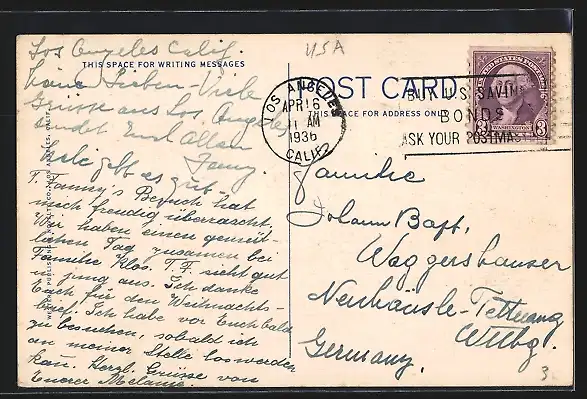 Los Angeles Calif.
THIS SPACE FOR WRITING MESSAGES
Meine Lieben - Viele
Grüsse aus Los Angeles
sendet Euch Allen
Fanny.
geht es gut -
T. Fanny's Besuch hat
mich freudig überrascht,
Wir haben einen gemüt-
lichen Tag zusammen bei
Familie Klos. T. F. sieht gut
u. jung aus. Ich danke
Euch für den Weihnachts-
brief. Ich habe vor Euch bald
zu besuchen, sobald ich
an meiner Stelle loswerden
kañ. Herzl. Grüsse von
Eurer Melanie.
USA
POST CARD
THIS SPACE FOR ADDRESS ONLY
LOS ANGELES
APR 16
11 AM
1936
CALIF.
BUY U.S. SAVINGS
BONDS
ASK YOUR POSTMASTER
UNITED STATES POSTAGE
WASHINGTON
3 3
Familie
Johann Bapt.
Waggershauser
Neuhäusle-Tettnang
Wttbg.
Germany.
3.